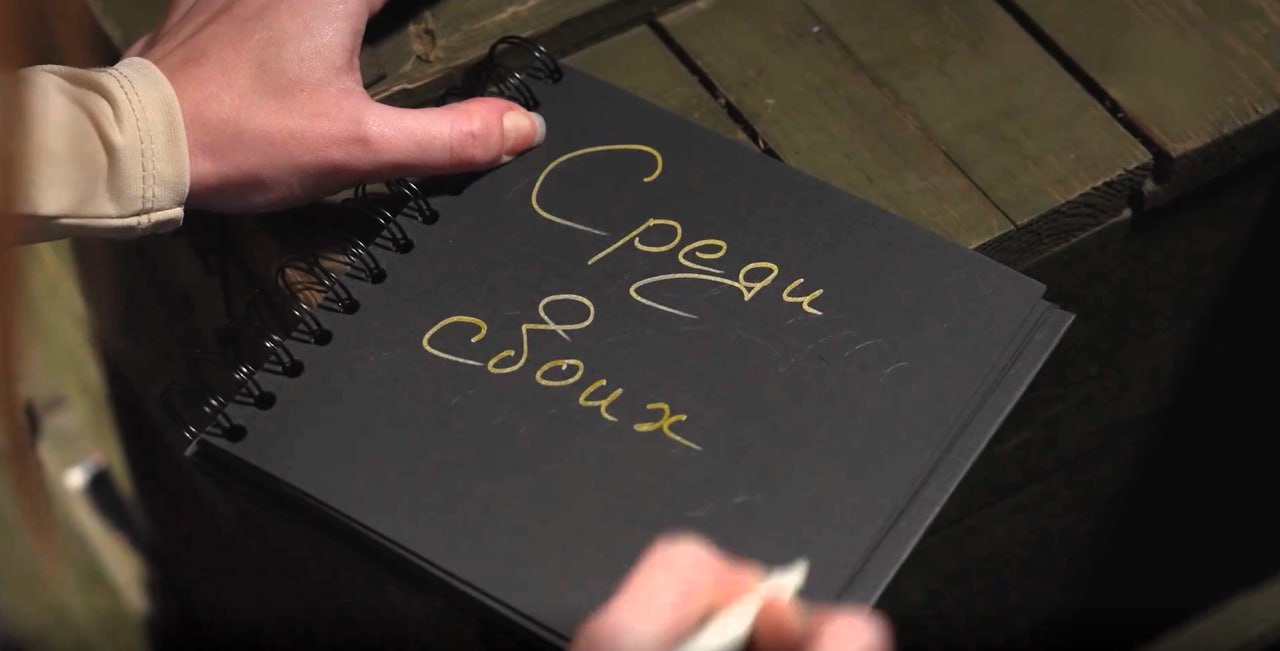 Среди
своих